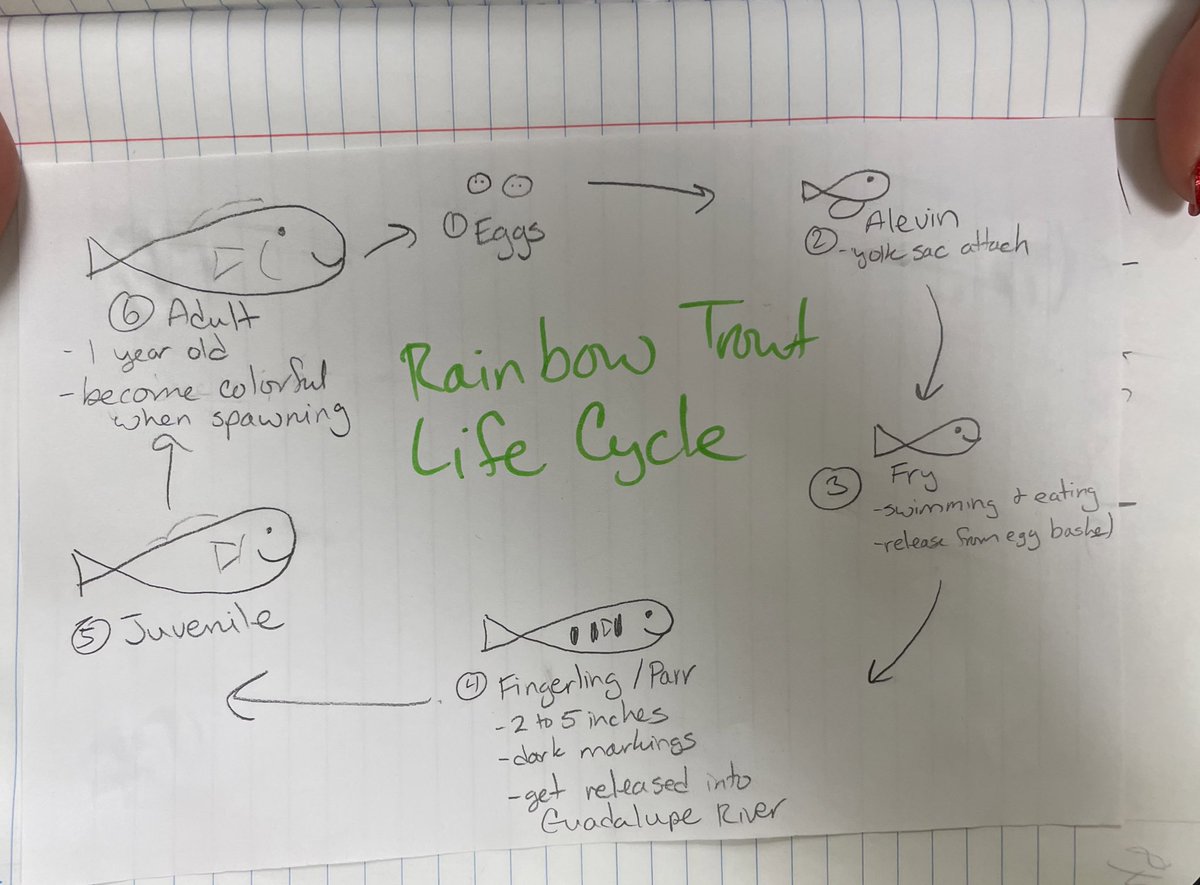 Rainbow Trout
Life Cycle
① Eggs
② Alevin
- yolk sac attach
③ Fry
- swimming + eating
- release from egg basket
④ Fingerling / Parr
- 2 to 5 inches
- dark markings
- get released into
Guadalupe River
⑤ Juvenile
⑥ Adult
- 1 year old
- become colorful
when spawning